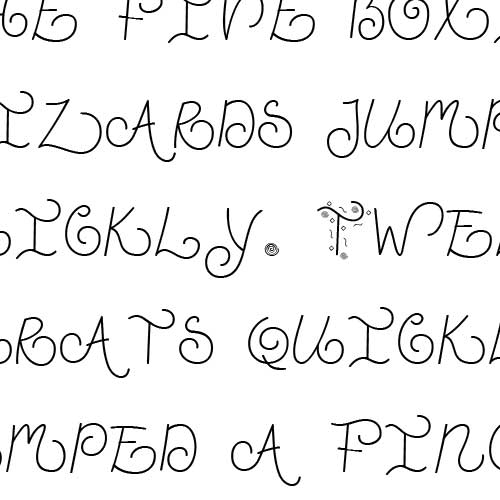 HE FIVE BOXI
IZARDS JUMP
ICKLY. TWEL
RATS QUICKL
UMPED A FING